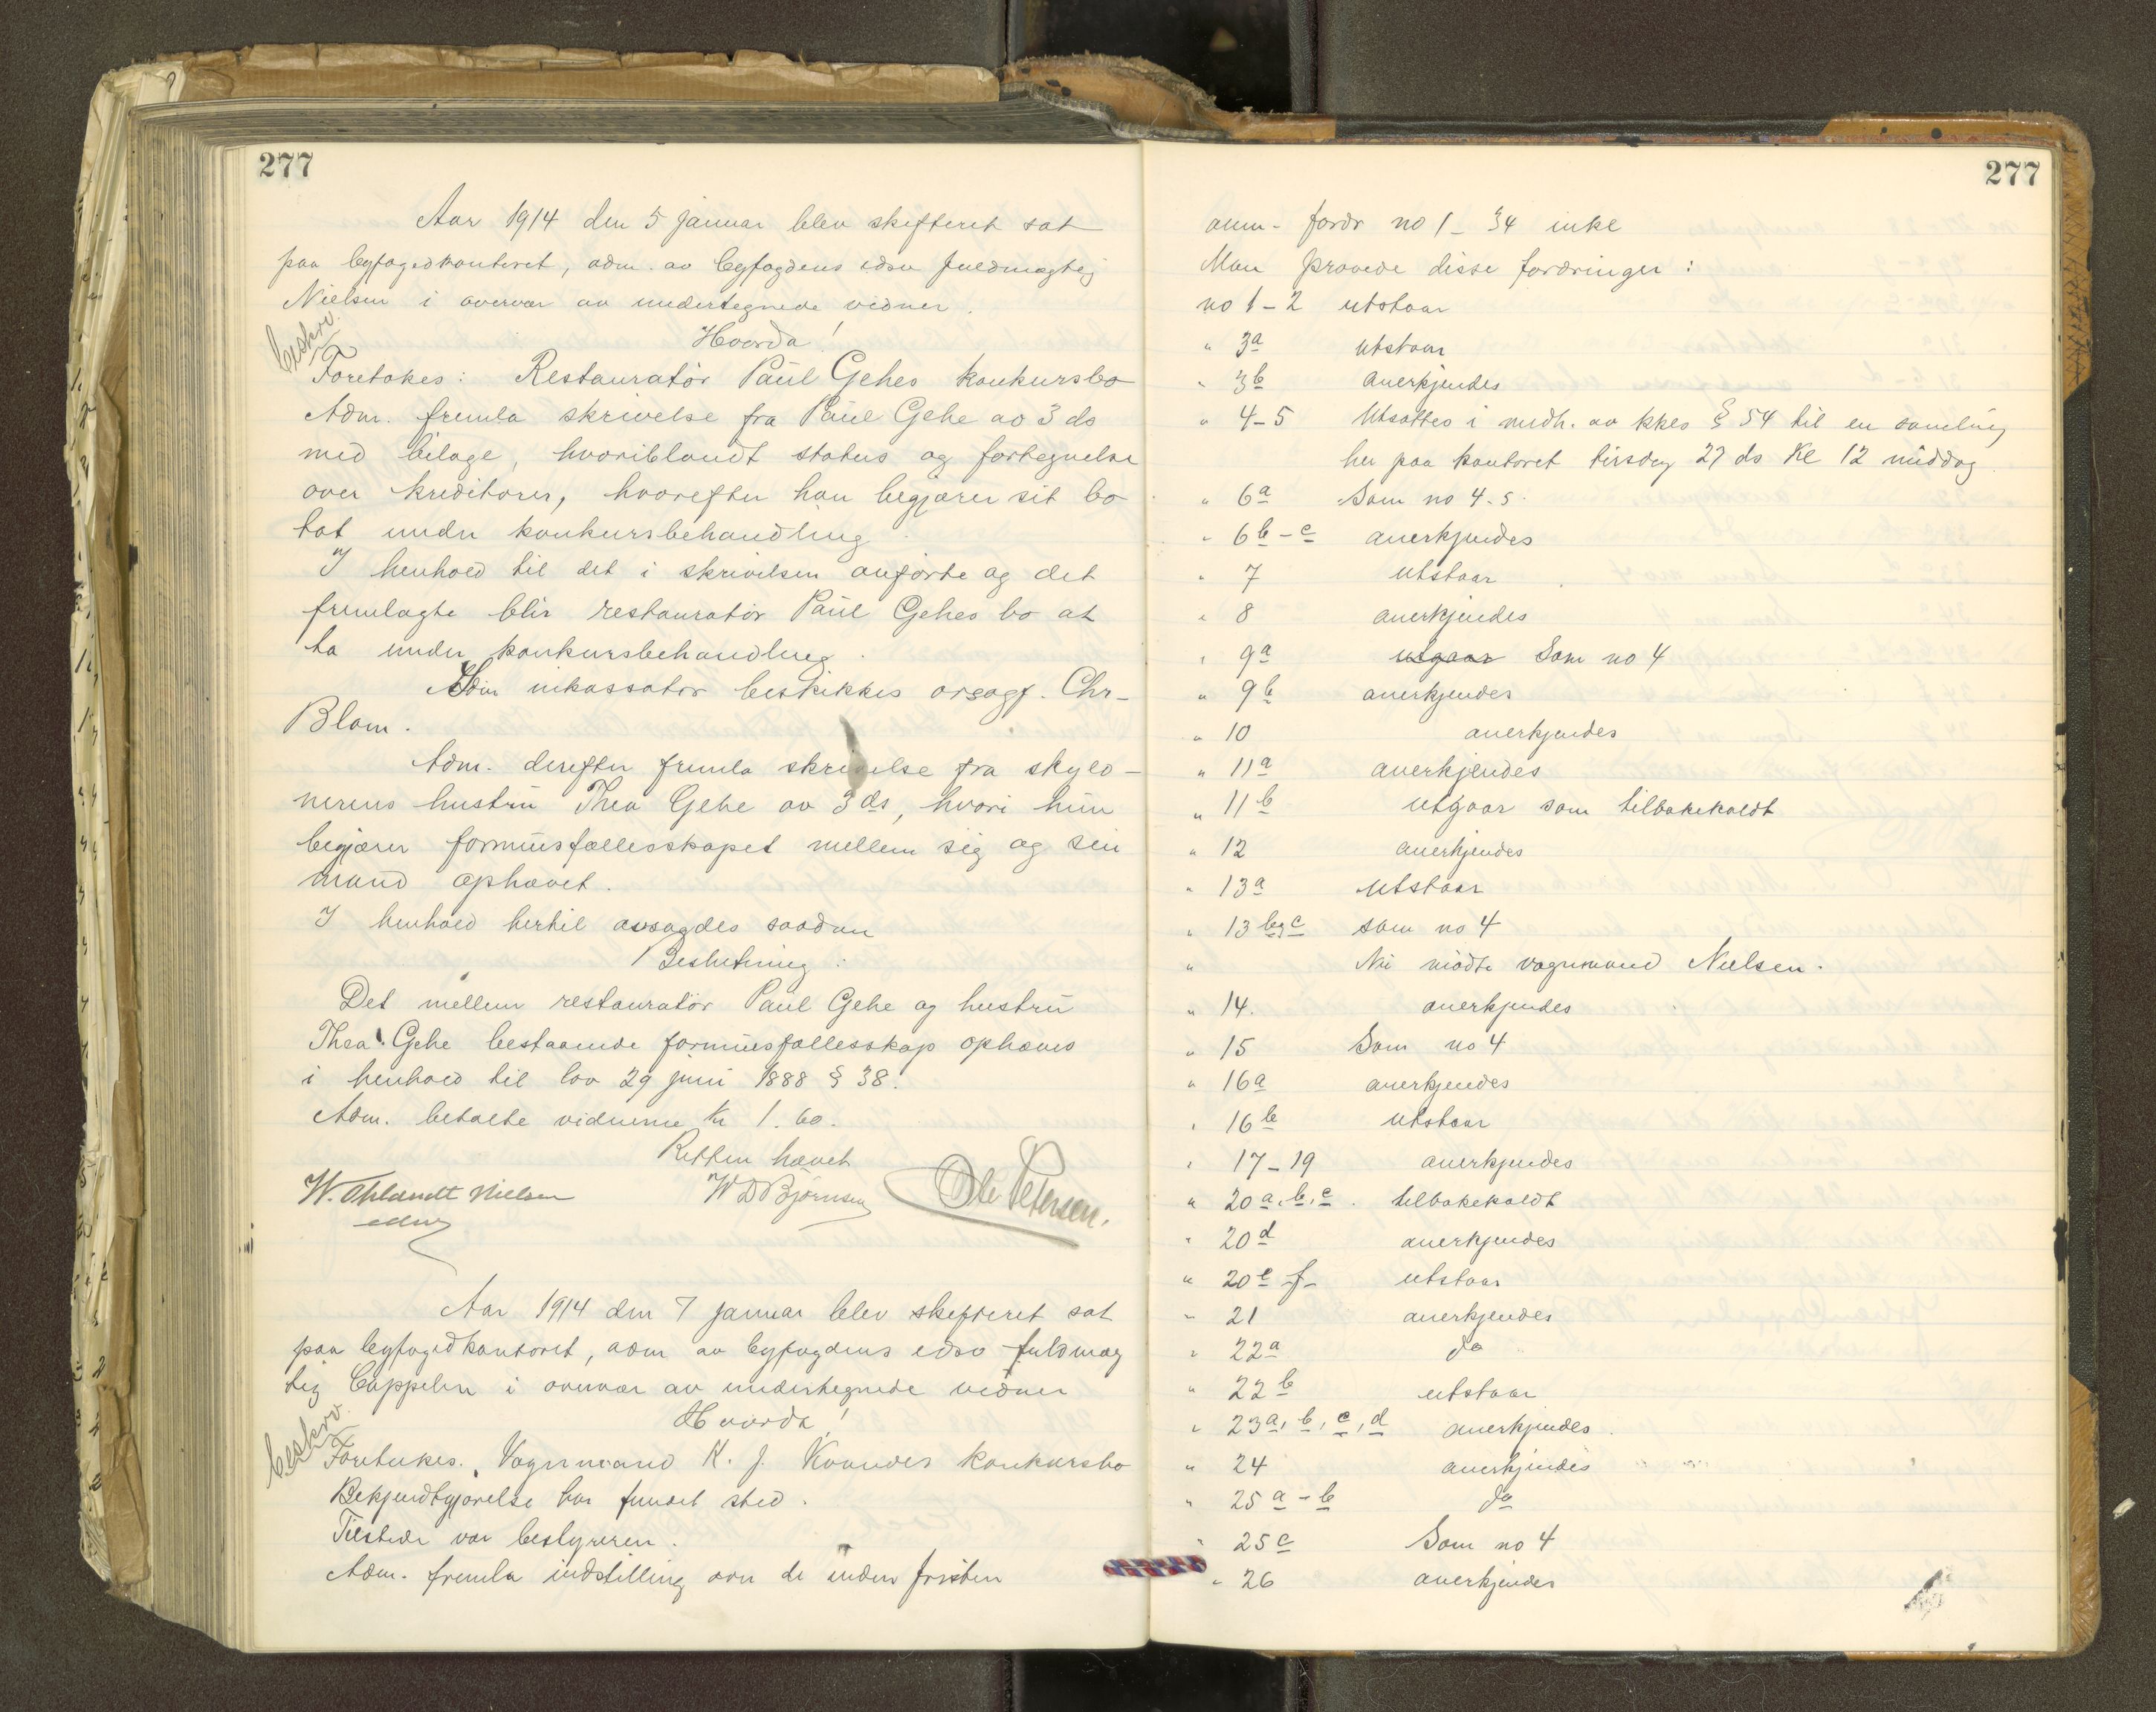 277
Aar 1914 den 5 januar blev skifteret sat
paa byfogedkontoret, adm. av byfogdens edsv fuldmægtig
Nielsen i overvær av undertegnede vidner.
beskrv.
Hvorda!
Foretokes: Restauratør Paul Gehes konkursbo
Adm. fremla skrivelse fra Paul Gehe av 3 ds
med bilage, hvoriblandt status og fortegnelse
over kreditorer, hvorefter han begjærer sit bo
tat under konkursbehandling.
I henhold til det i skrivelsen anførte og det
fremlagte blir restauratør Paul Gehes bo at
ta under konkursbehandling.
Som inkassator beskikkes orsagf. Chr.
Blom.
Adm. derefter fremla skrivelse fra skyld-
nerens hustru Thea Gehe av 3 ds, hvori hun
begjærer formuesfællesskapet mellem sig og sin
mand ophævet.
I henhold hertil avsagdes saadan
Beslutning:
Det mellem restauratør Paul Gehe og hustru
Thea Gehe bestaaende formuesfællesskap ophæves
i henhold til lov 29 juni 1888 § 38.
Adm. betalte vidnerne kr 1.60.
Retten hævet
W. Nielsen
W D Bjørnsen
Ole Petersen.
Aar 1914 den 7 januar blev skifteret sat
paa byfogedkontoret, adm av byfogdens edsv fuldmæg
tig Cappelen i overvær av undertegnede vidner
Hvorda!
beskrv.
Foretokes. Vognmand K. J. konkursbo
Bekjendtgjørelse har fundet sted.
Tilstede var bestyreren.
Adm. fremla indstilling over de inden fristen
277
anm. fordr no 1 - 34 inkl
Man prøvede disse fordringer:
no 1 - 2 utstaar
" 3a utstaar
" 3b anerkjendes
" 4-5 Utsattes i medh. av kkls § 54 til en samling
her paa kontoret tirsdag 27 ds Kl 12 middag
" 6a Som no 4-5.
" 6b - c anerkjendes
" 7 utstaar
" 8 anerkjendes
" 9a utgaar Som no 4
" 9b anerkjendes
" 10 anerkjendes
" 11a anerkjendes
" 11b utgaar som tilbakekaldt
" 12 anerkjendes
" 13a utstaar
" 13 b og c som no 4
" Nu mødte vognmand Nielsen.
" 14. anerkjendes
" 15 Som no 4
" 16a anerkjendes
" 16b utstaar
" 17-19 anerkjendes
" 20 a, b, c. tilbakekaldt
" 20d anerkjendes
" 20e-f- utstaar
" 21 anerkjendes
" 22a do
" 22b utstaar
" 23a, b, c, d anerkjendes.
" 24 anerkjendes
" 25 a - b do
" 25c Som no 4
" 26 anerkjendes